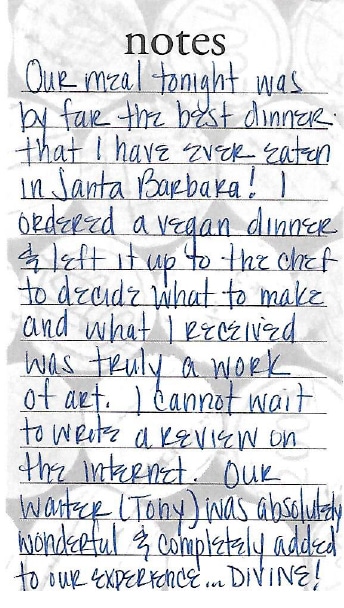 notes
Our meal tonight was
by far the best dinner
that I have ever eaten
in Santa Barbara! I
ordered a vegan dinner
& left it up to the chef
to decide what to make
and what I received
was truly a work
of art. I cannot wait
to write a review on
the internet. Our
waiter (Tony) was absolutely
wonderful & completely added
to our experience... DIVINE!